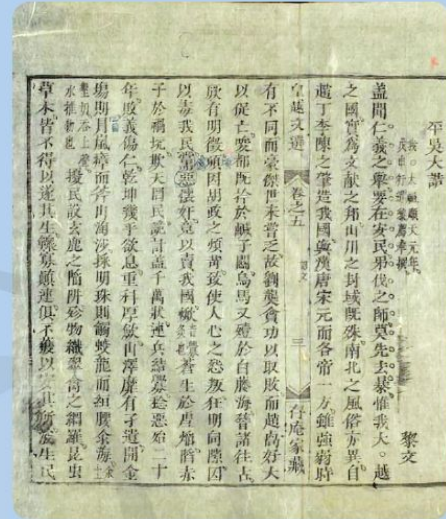 平吳大誥
黎文
蓋聞仁義之舉要在安民弔伐之師莫先去暴惟我大。越
之國實爲文献之邦山川之封域既殊南北之風俗亦異自
趙丁李陳之肇造我國與漢唐宋元而各帝一方雖強弱時
皇越文選 卷之五 誥文 三 存庵家藏
有不同而豪傑世未嘗乏故劉龔貪功以取敗而趙卨好大
以促亡唆都既擒於鹹子關烏馬又殪於白藤海嵇諸往古
厥有明徵頃因胡政之煩苛致使人心之怨叛狂明伺隙因
以毒我民惡懷奸竟以賣我國蒼生於虐焰陷赤
子於禍坑欺天罔民詭計蓋千萬狀連兵結釁稔惡殆二十
年敗義傷仁乾坤幾乎欲息重科厚歛山澤靡有孑遺開金
塲則冒嵐瘴而斧山淘沙採明珠則觸蛟龍而絙腰汆海
擾民設玄鹿之陷阱殄物織翠禽之網羅昆虫
草木皆不得以遂其生鰥寡顛連俱不獲以安其所浚生民